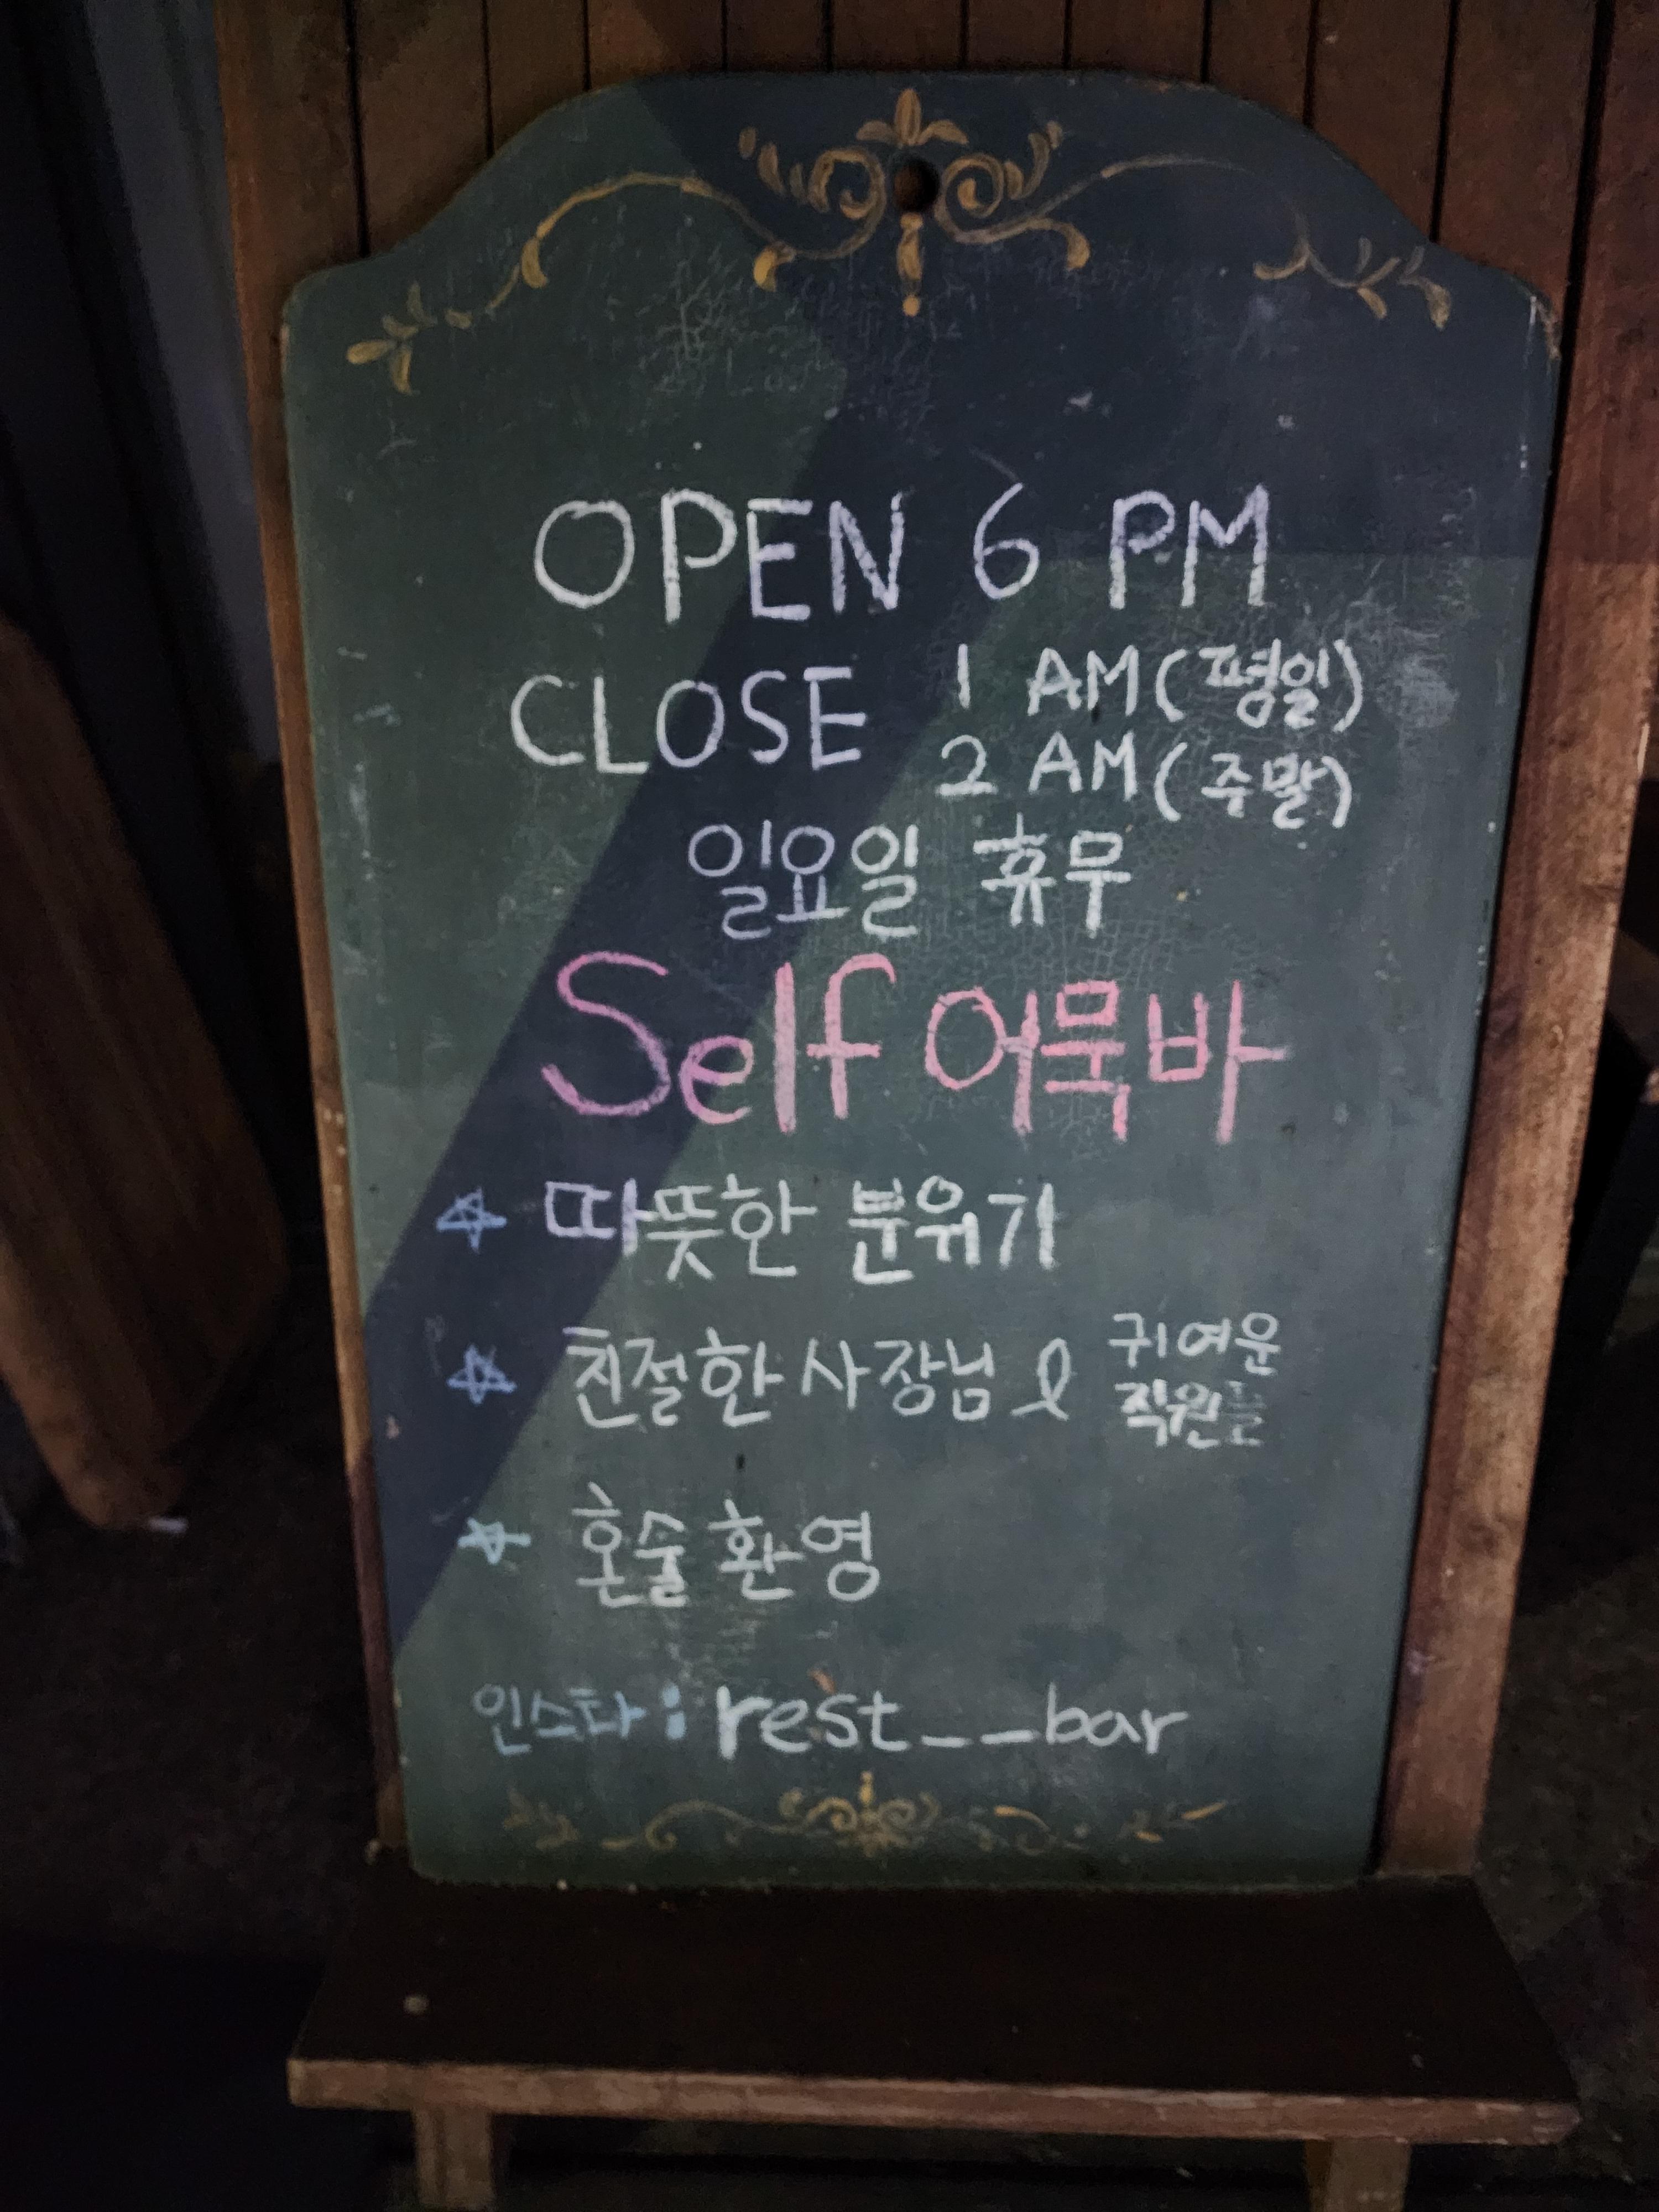 OPEN 6 PM
CLOSE 1 AM (평일)
2 AM (주말)
일요일 휴무
Self 어묵바
☆ 따뜻한 분위기
☆ 친절한 사장님 & 귀여운
직원들
☆ 혼술 환영
인스타 : rest__bar